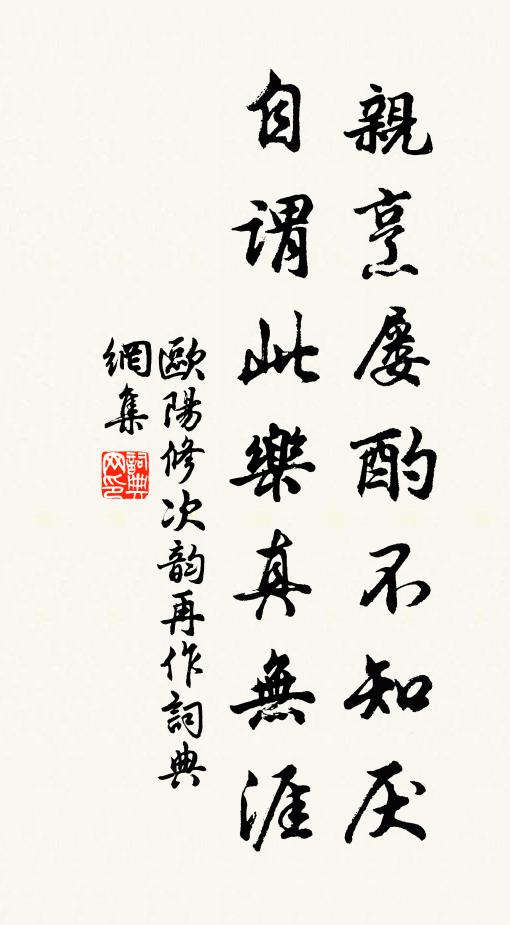 親烹屡酌不知厌
自谓此樂真無涯
歐陽修次韵再作詞典
網集
詞典
网印